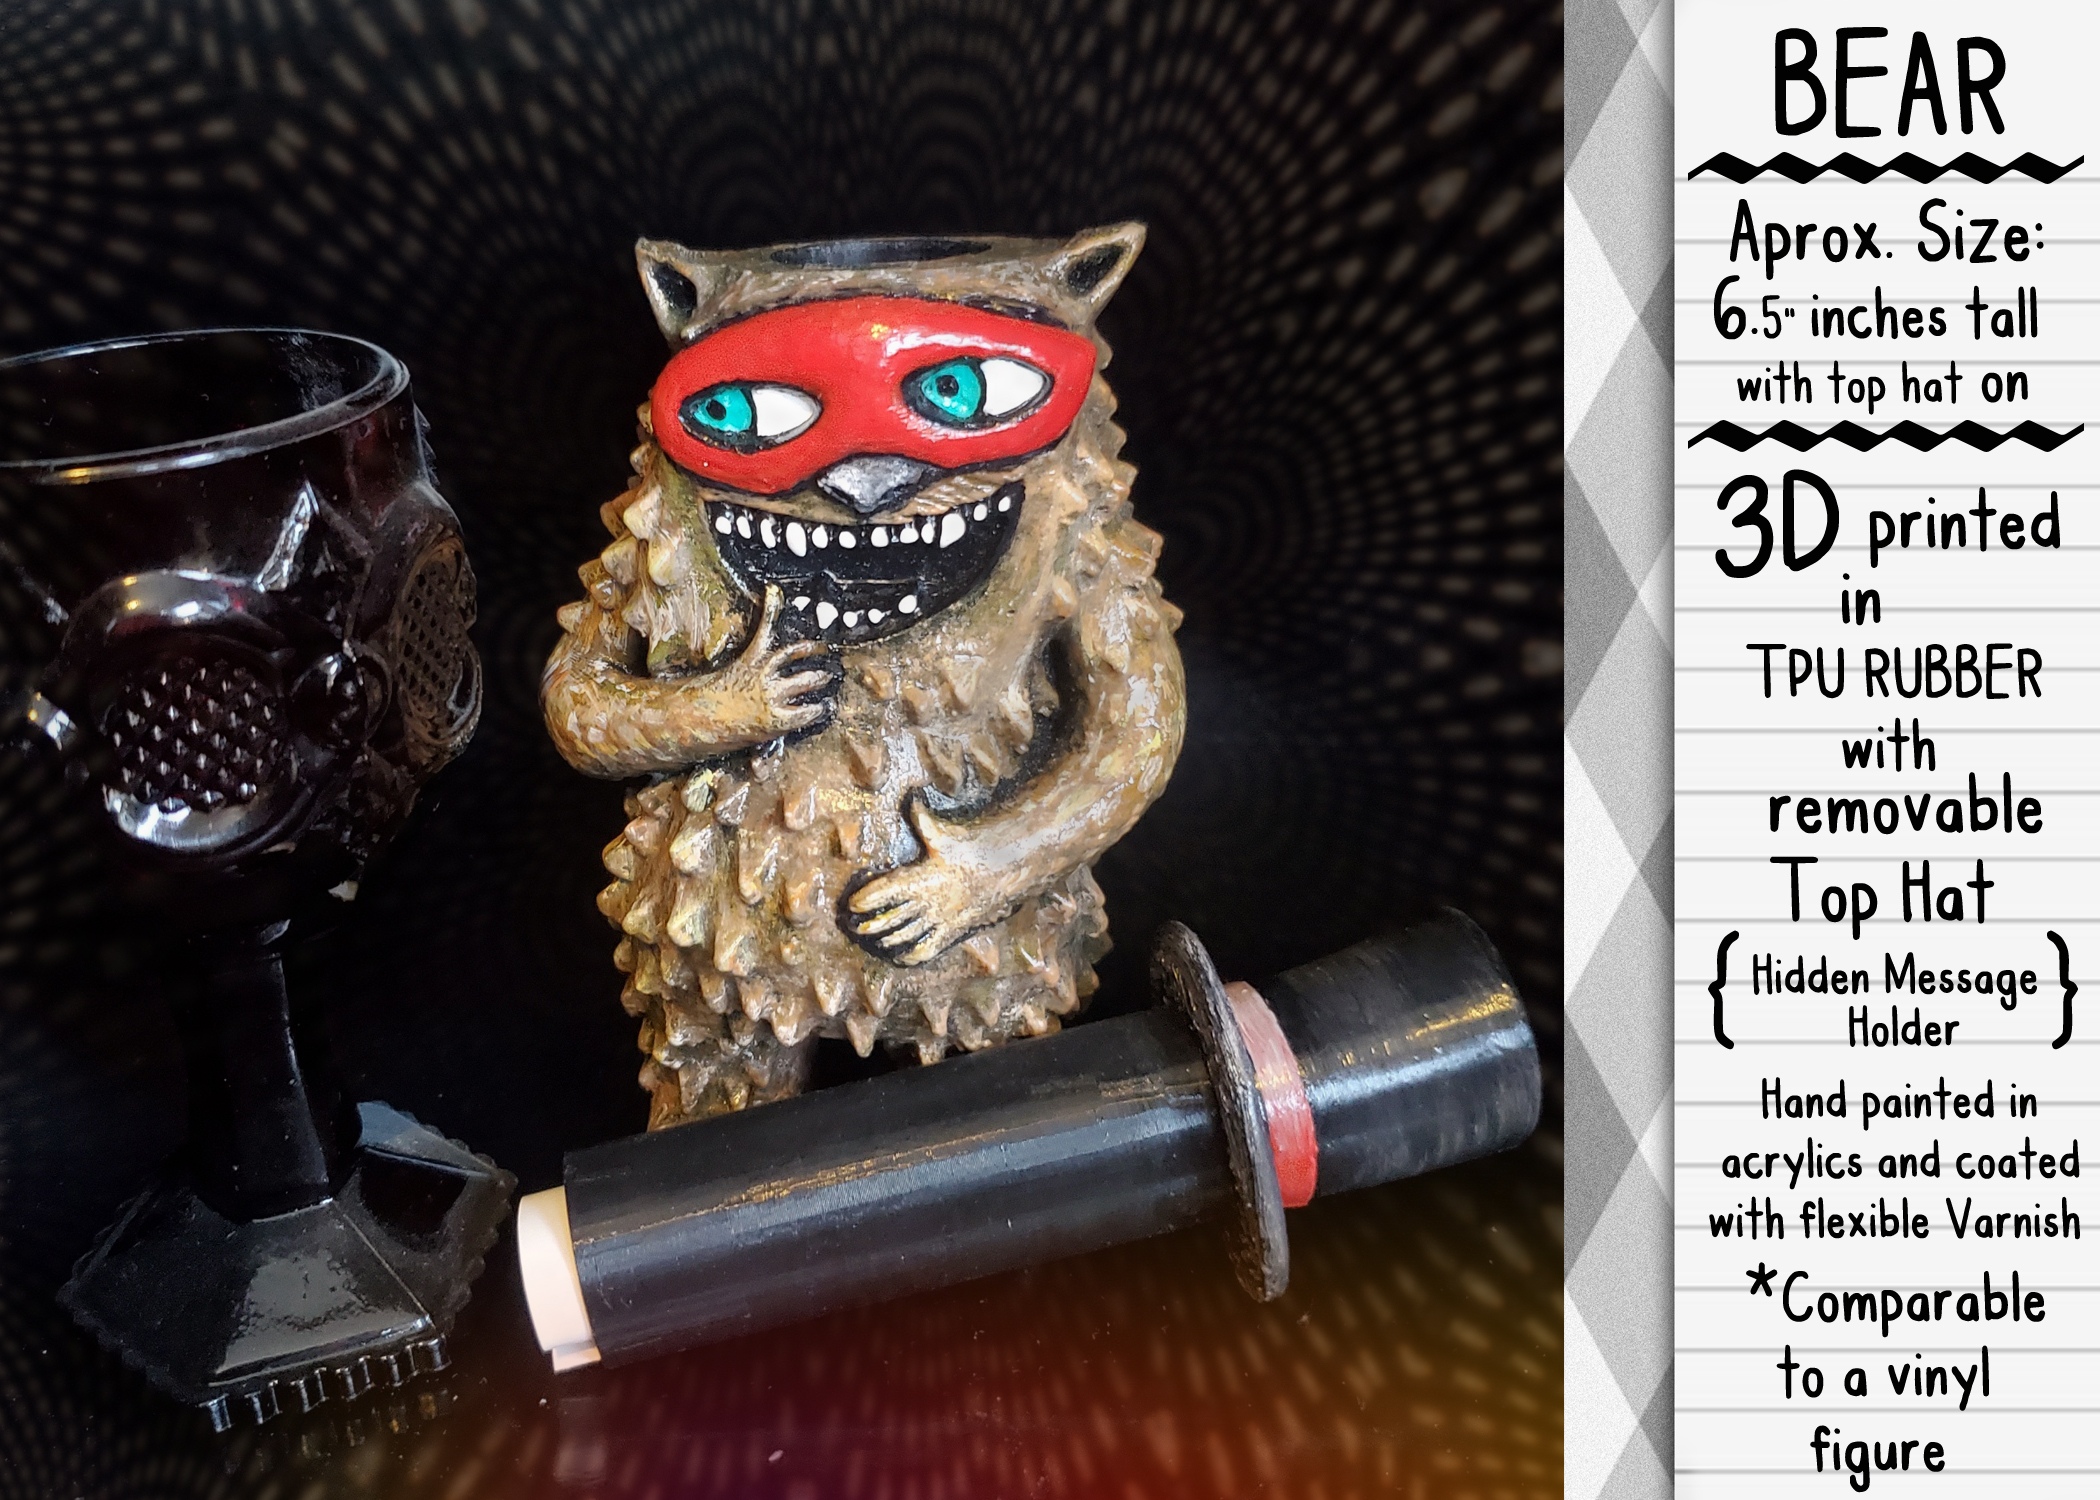 BEAR
Aprox. Size:
6.5" inches tall
with top hat on
3D printed
in
TPU RUBBER
with
removable
Top Hat
{Hidden Message
Holder}
Hand painted in
acrylics and coated
with flexible Varnish
*Comparable
to a vinyl
figure